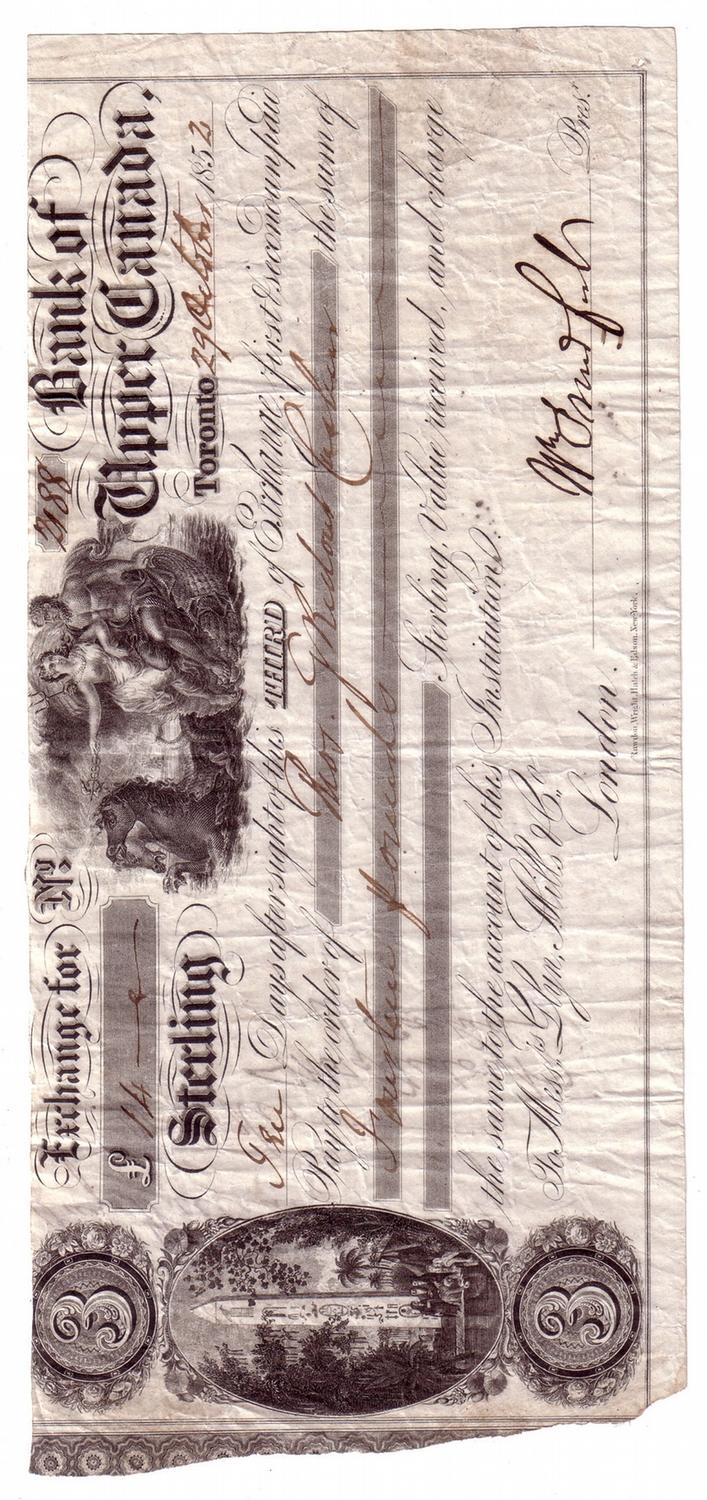 Exchange for Nº Bank of
£ 14 Upper Canada,
Sterling Toronto 29 October 1852
Ten Days after sight of this THIRD of Exchange, first & second unpaid
Pay to the order of Thos. G Ridout Cashier the sum of
Fourteen pounds
Sterling, Value received, and charge
the same to the account of this Institution.
To Mess.rs Glyn, Mills & Co.
London. Wm Proudfoot Pres.t
Rawdon, Wright, Hatch & Edson, New-York.
3
3